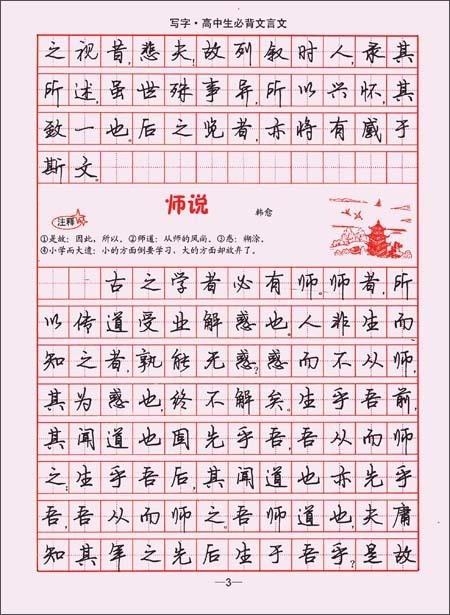 写字·高中生必背文言文
之视昔,悲夫!故列叙时人,录其
所述,虽世殊事异,所以兴怀,其
致一也。后之览者,亦将有感于
斯文。
师说
韩愈
注释
①是故:因此,所以。②师道:从师的风尚。③惑:糊涂。
④小学而大遗:小的方面倒要学习,大的方面却放弃了。
古之学者必有师。师者,所
以传道受业解惑也。人非生而
知之者,孰能无惑?惑而不从师,
其为惑也,终不解矣。生乎吾前,
其闻道也固先乎吾,吾从而师
之;生乎吾后,其闻道也亦先乎
吾,吾从而师之。吾师道也,夫庸
知其年之先后生于吾乎?是故
—3—